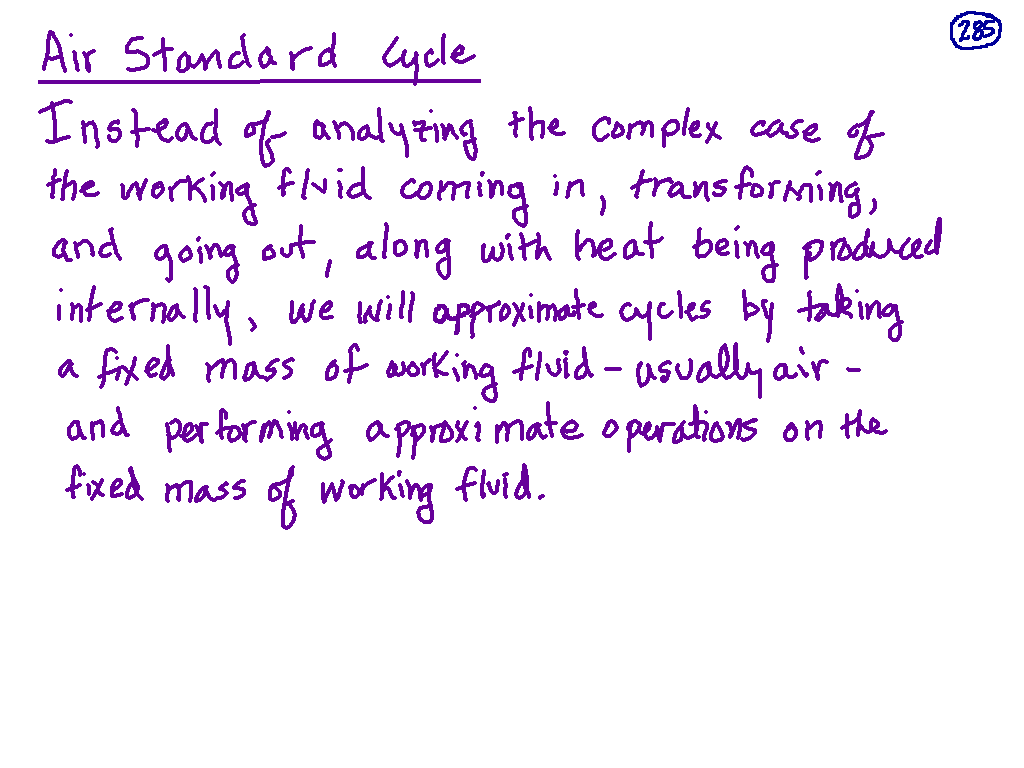 285
Air Standard Cycle
Instead of analyzing the complex case of
the working fluid coming in, transforming,
and going out, along with heat being produced
internally, we will approximate cycles by taking
a fixed mass of working fluid - usually air -
and performing approximate operations on the
fixed mass of working fluid.